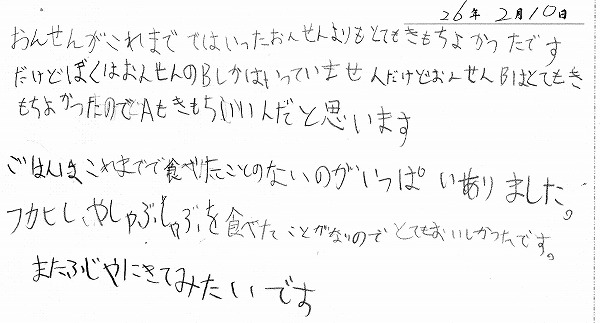 26年 2月10日
おんせんがこれまでではいったおんせんよりもとてもきもちよかったです
だけどぼくはおんせんのBしかはいっていませんだけどおんせんBはとてもき
もちよかったのでAもきもちいいんだと思います
ごはんはこれまでで食べたことのないのがいっぱいありました。
フカヒレやしゃぶしゃぶを食べたことがないのでとてもおいしかったです。
またふじやにきてみたいです